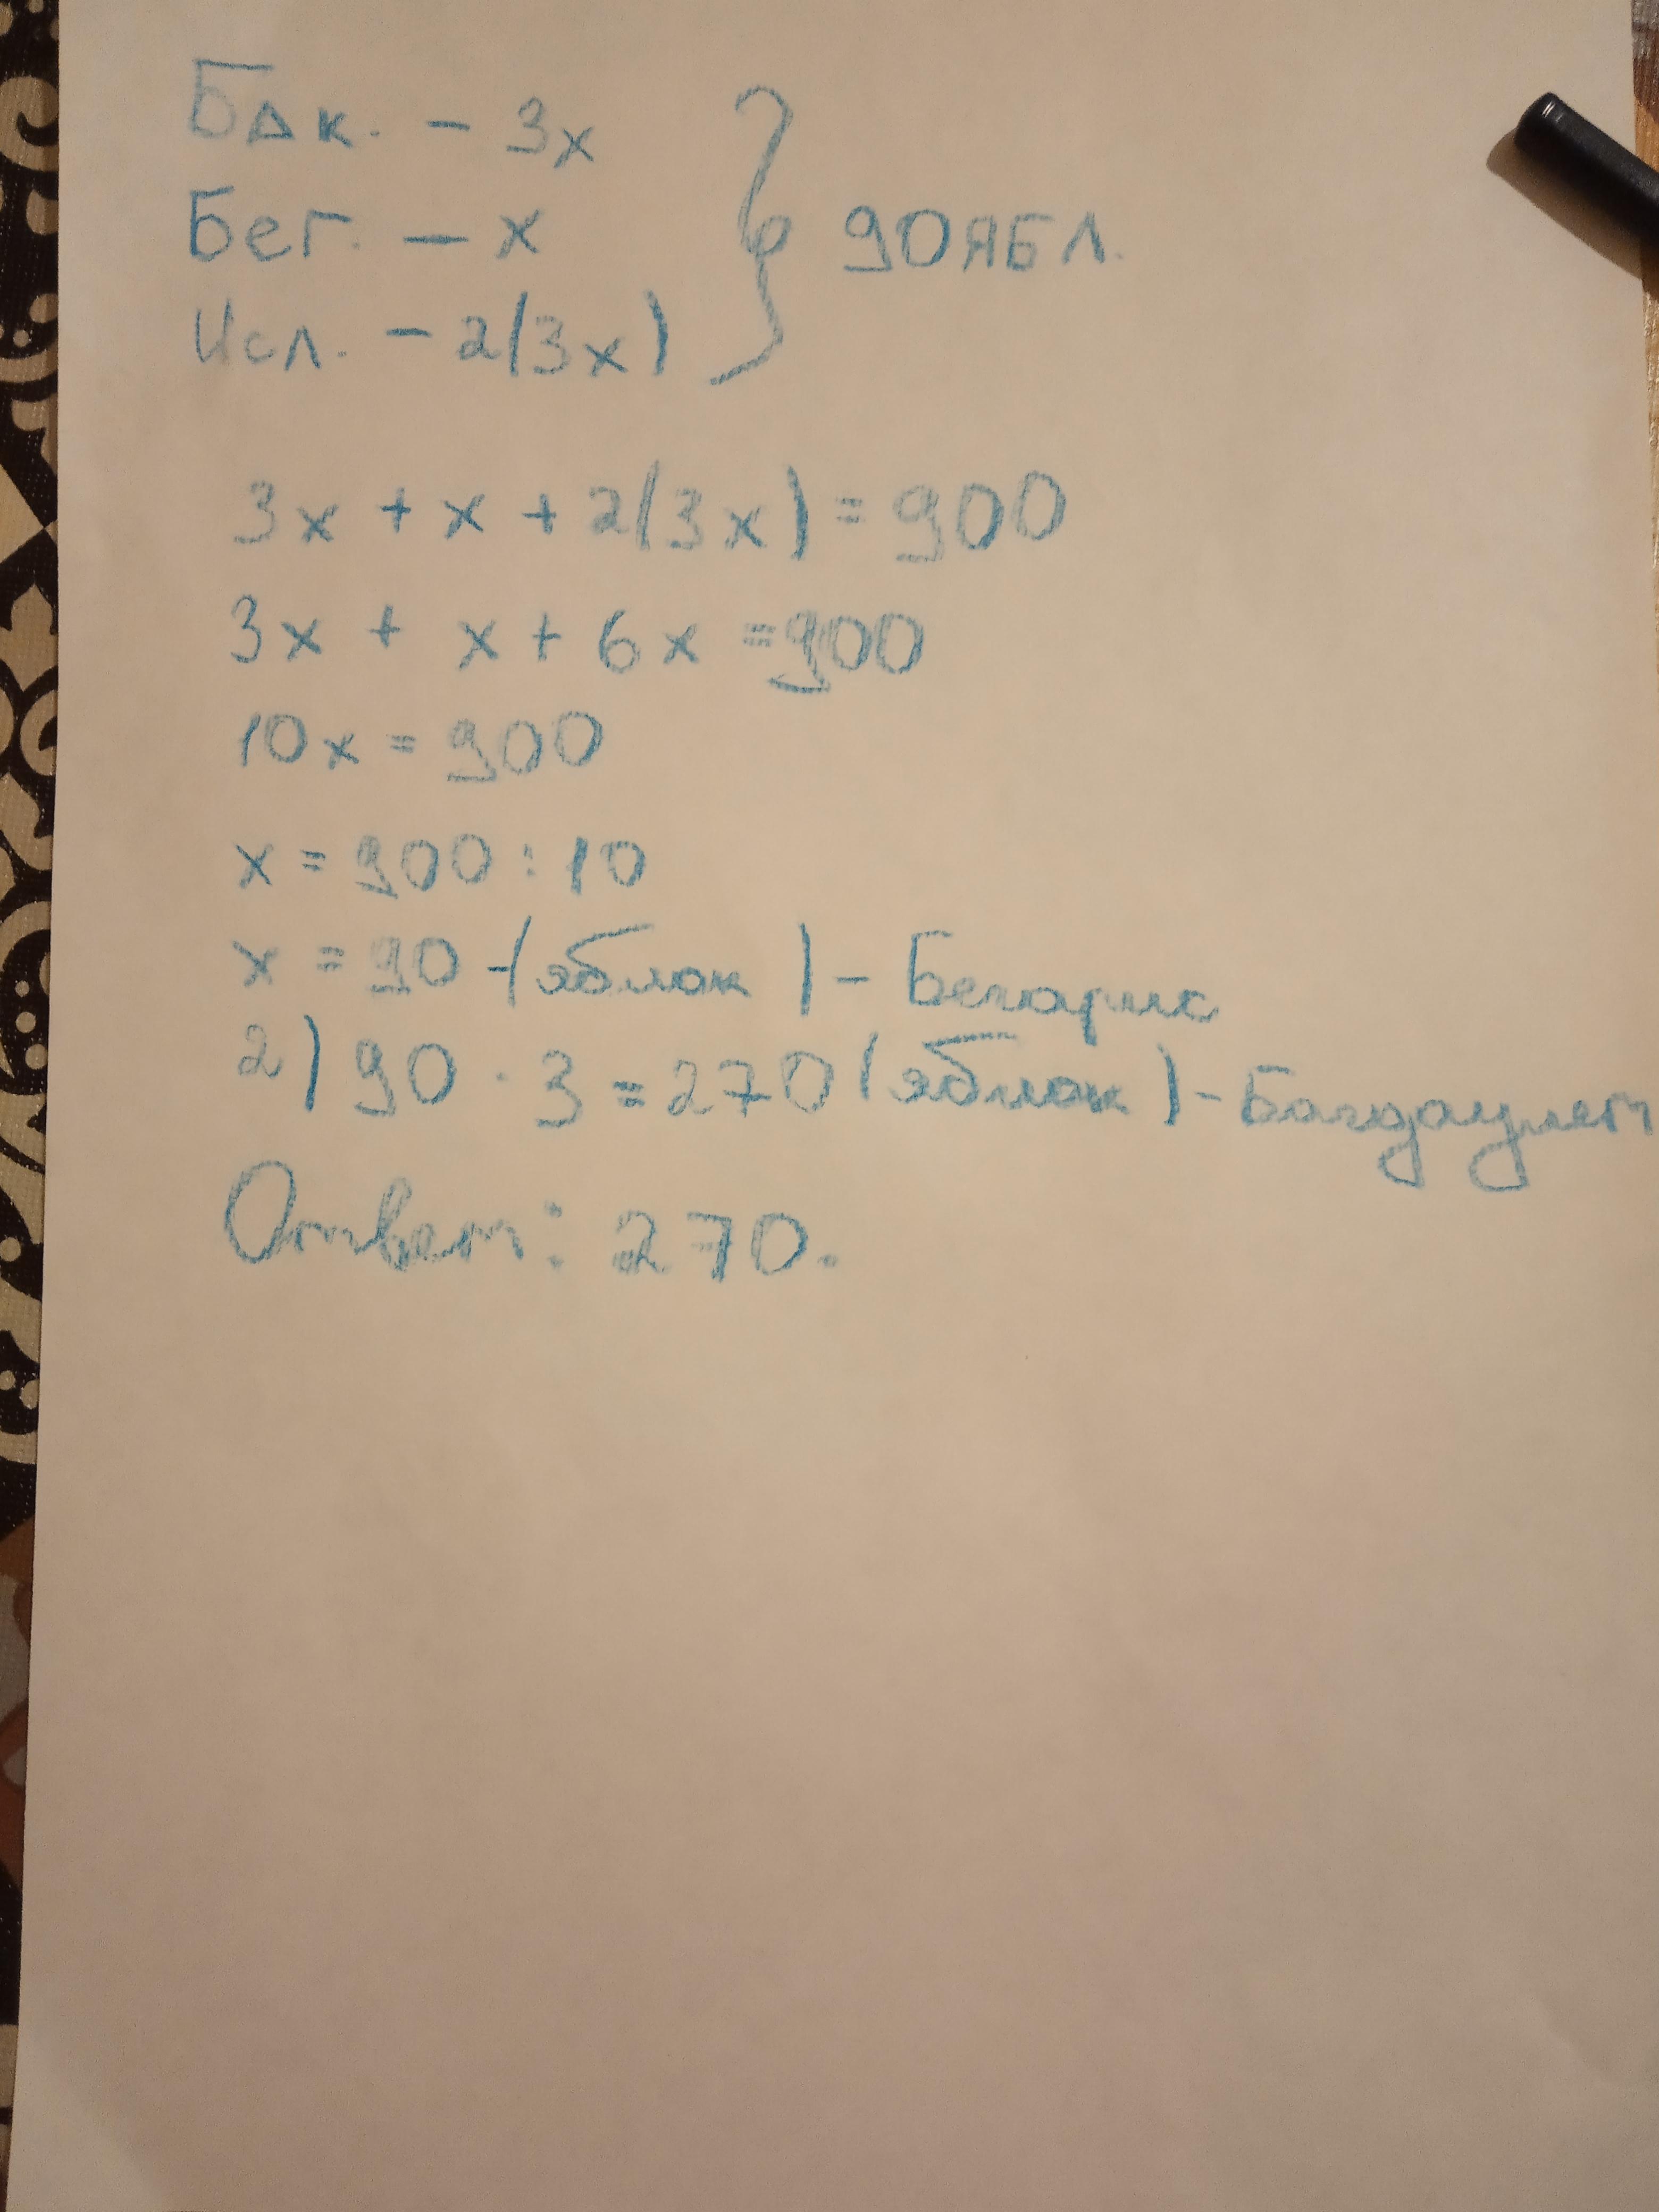 Бак. - 3х
Бег. - х
Исл. - 2(3х)
90 ябл.
3х + х + 2(3х) = 900
3х + х + 6х = 900
10х = 900
х = 900 : 10
х = 90 - (яблок) - Бекарыс
2) 90 · 3 = 270 (яблок) - Бакдаулет
Ответ: 270.